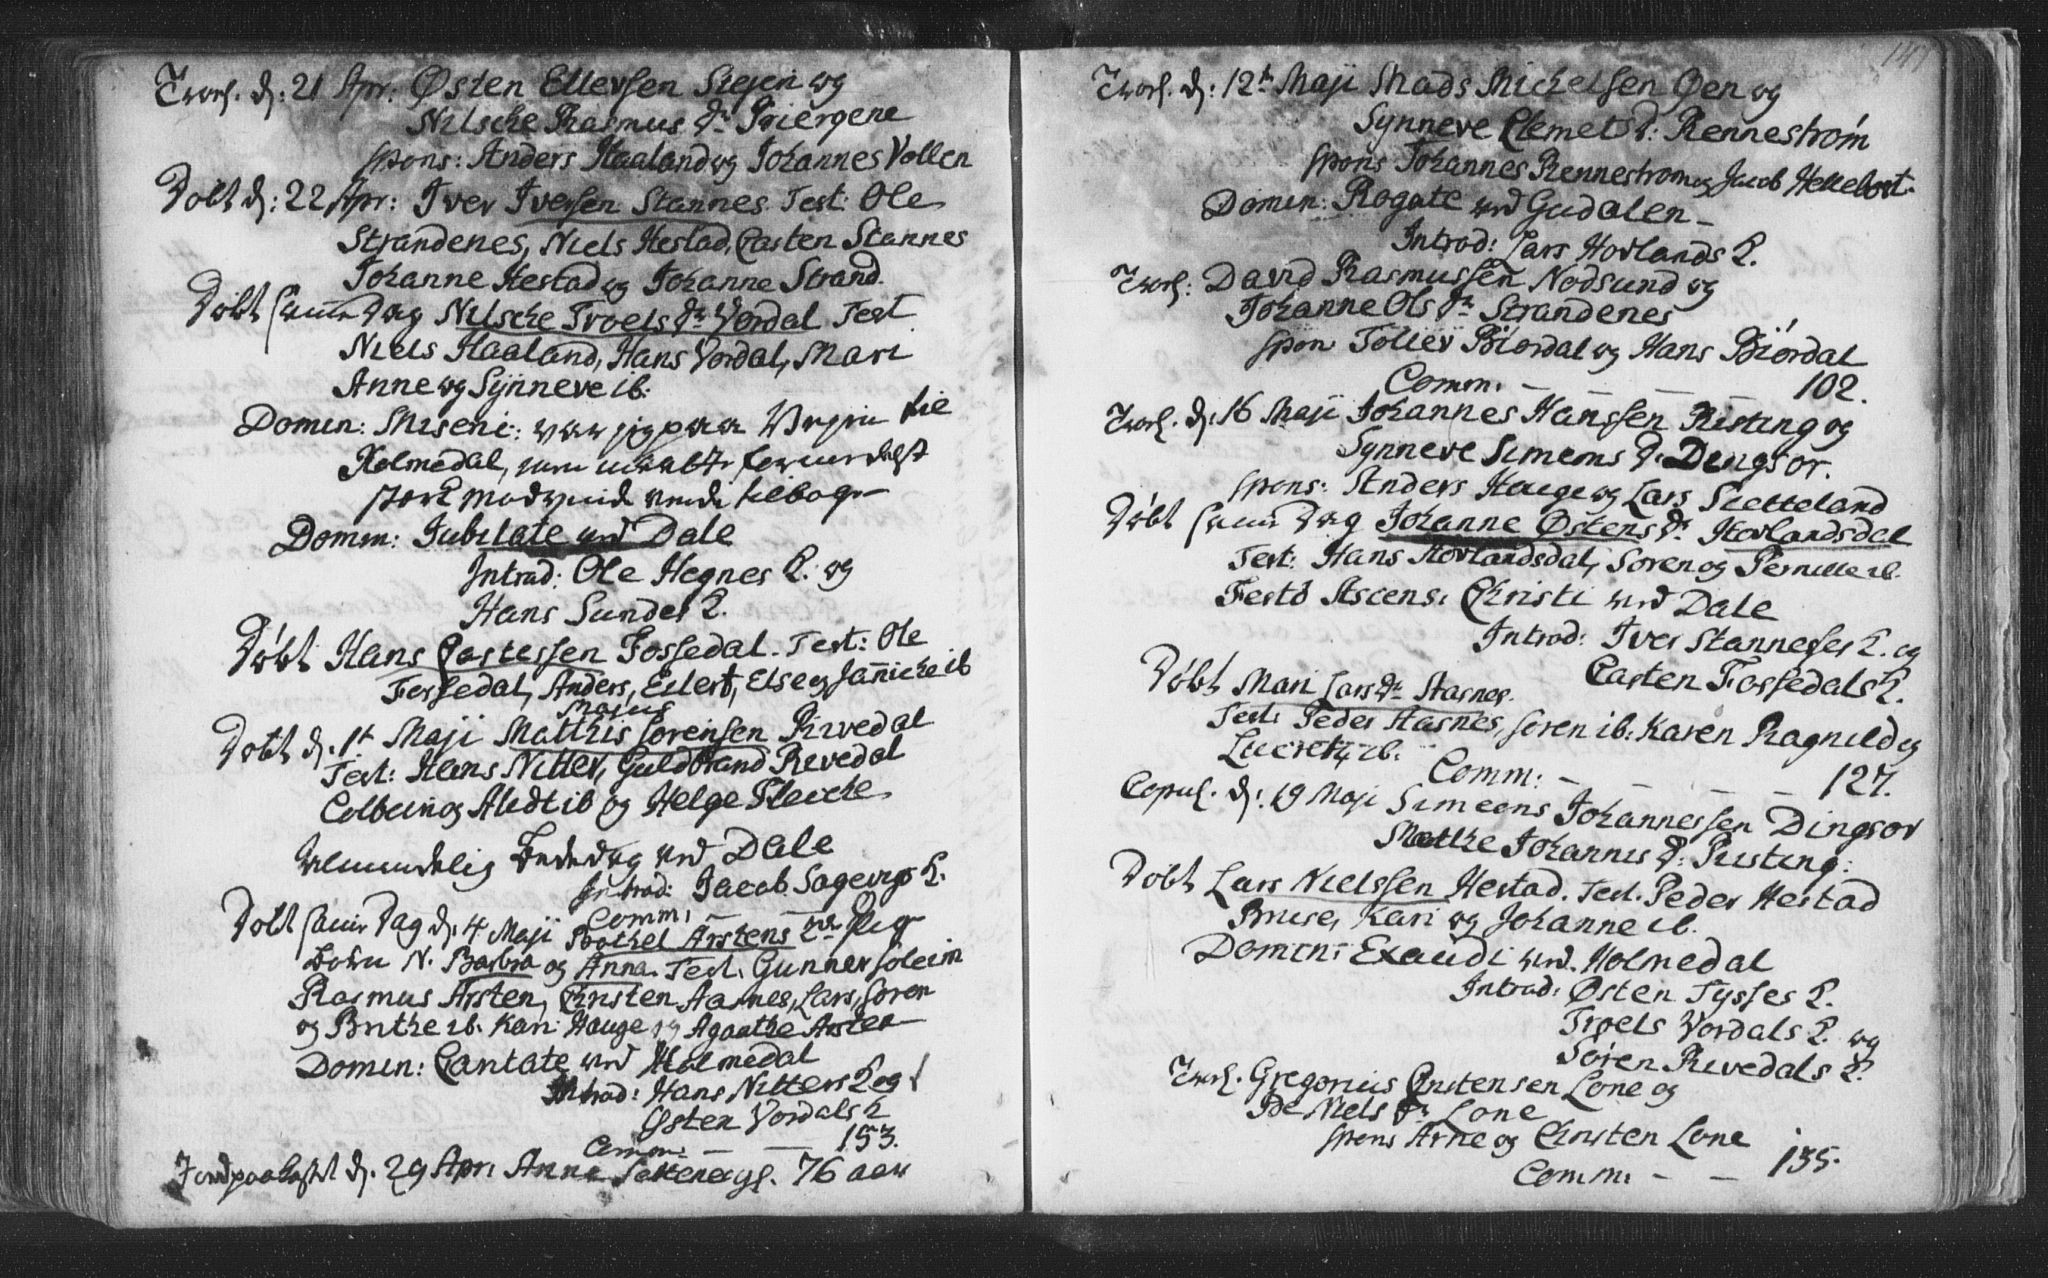 Trol. d: 21 Apr: Østen Ellevsen Siesen og
Nilsche Rasmus Dr Biergene
spons: Anders Haaland og Johannes Vollen
Døbt d: 22 Apr: Iver Iversen Stannes. Test: Ole
Strandenes, Niels Hestad, Casten Stannes
Johanne Hestad og Johanne Strand.
Døbt samme Dag Nilsche Troels Dr Vordal Test
Niels Haaland, Hans Vordal, Mari
Anne og Synneve ib:
Domin: Miseric: var jeg paa Vejen til
Holmedal, men maatte formedelst
stærk modvind vende tilbage
Domin: Jubilate ved Dale
Introd: Ole Hegnes K. og
Hans Sundes K.
Døbt Hans Castessen Fossedal. Test: Ole
Fossedal, Anders, Eilert, Else og Jannicke ib
Majus
Døbt d. 1t Maji Matthis Sørensen Rivedal
Test: Hans Nitter, Guldbrand Rivedal
Colbein og Aledt ib og Helge Fleiche
Almindelig Bededag ved Dale
Introd: Jacob Sagevigs K.
Comm: —
Døbt samme Dag d: 4 Maji Bothel Arstens 2de Pige
Børn N. Barbra og Anna. Test. Gunner Soleim
Rasmus Arsten, Christen Aasnes, Lars, Søren
og Brithe ib. Kari Hauge og Agaathe Arsten
Domin: Cantate ved Holmedal
Introd: Hans Nitters K og
Østen Vordals K
Comm: — — 153.
Jordpaakastet d. 29 Apri Anna Settenes gl. 76 aar
147
Trol. d: 12te Maji Mads Michelsen Øen og
Synneve Clemets D: Rennestrøm
spons Johannes Rennestrøm og Jacob Hellebost.
Domin: Rogate ved Gudalen —
Introd: Lars Hovlands K.
Trol: David Rasmussen Nodsund og
Johanne Ols Dr Strandenes
spon Tollev Biordal og Hans Biørdal
Comm: — — — — 102.
Trol. d: 16 Maji Johannes Hanssen Risting og
Synneve Simeons D. Dingsør.
spons: Anders Hauge og Lars Sletteland
Døbt samme Dag Johanne Østens Dr Hovlandsdal
Test: Hans Hovlandsdal, Søren og Pernille ib.
Festo Ascens: Christi ved Dale
Introd: Iver Stanneses K. og
Casten Fossedals K.
Døbt Mari Lars Dr Aasnes.
Test: Peder Aasnes, Søren ib: Karen Ragnild og
Lucretz ib.
Comm: — — — — 127.
Copul. d: 19 Maji Simeons Johannessen Dingsør
Mathe Johannis D: Risting:
Døbt Lars Nielssen Hestad. Test. Peder Hestad
Bruse, Kari og Johanne ib.
Domin: Exaudi ved Holmedal
Introd: Østen Tysses K.
Troels Vordals K. og
Søren Rivedals K.
Trol. Gregorius Cristensen Lone og
Ide Niels Dr Lone
spons Arne og Christen Lone
Comm: — — 135.